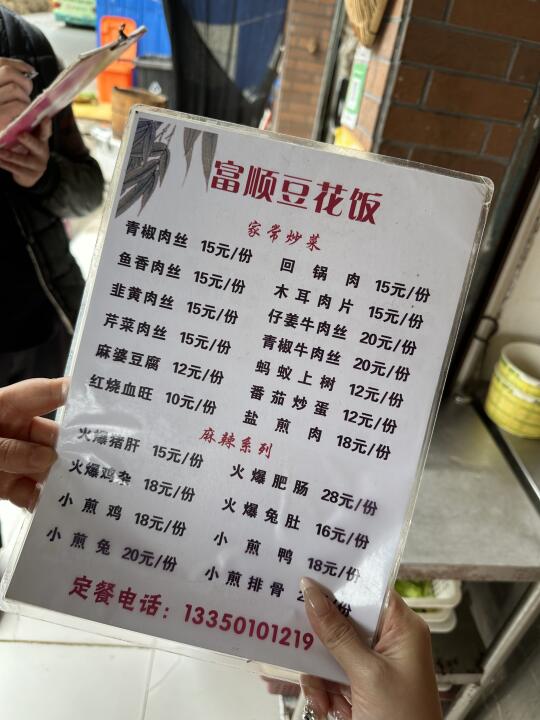 富顺豆花饭
家常炒菜
青椒肉丝 15元/份
鱼香肉丝 15元/份
韭黄肉丝 15元/份
芹菜肉丝 15元/份
麻婆豆腐 12元/份
红烧血旺 10元/份
回锅肉 15元/份
木耳肉片 15元/份
仔姜牛肉丝 20元/份
青椒牛肉丝 20元/份
蚂蚁上树 12元/份
番茄炒蛋 12元/份
盐煎肉 18元/份
麻辣系列
火爆猪肝 15元/份
火爆鸡杂 18元/份
小煎鸡 18元/份
小煎兔 20元/份
火爆肥肠 28元/份
火爆兔肚 16元/份
小煎鸭 18元/份
小煎排骨 元/份
定餐电话：13350101219